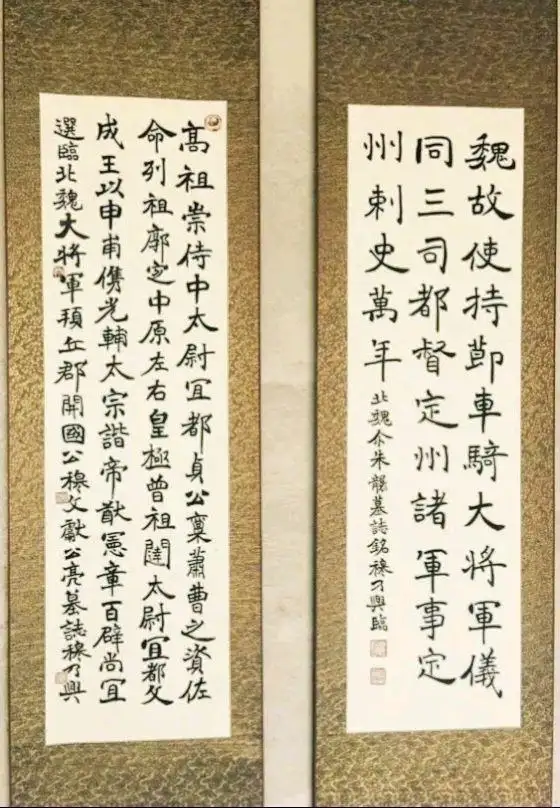 魏故使持節車騎大将軍儀
同三司都督定州諸軍事定
州刺史萬年
北魏尒朱襲墓誌銘穆乃興臨
高祖崇侍中太尉宜都貞公稟蕭曹之資佐
命列祖廓定中原左右皇極曾祖闥太尉宜都文
成王以申甫儁光輔太宗諧帝猷憲章百辟尚宜
選臨北魏大将軍頓丘郡開國公穆文獻公亮墓誌穆乃興